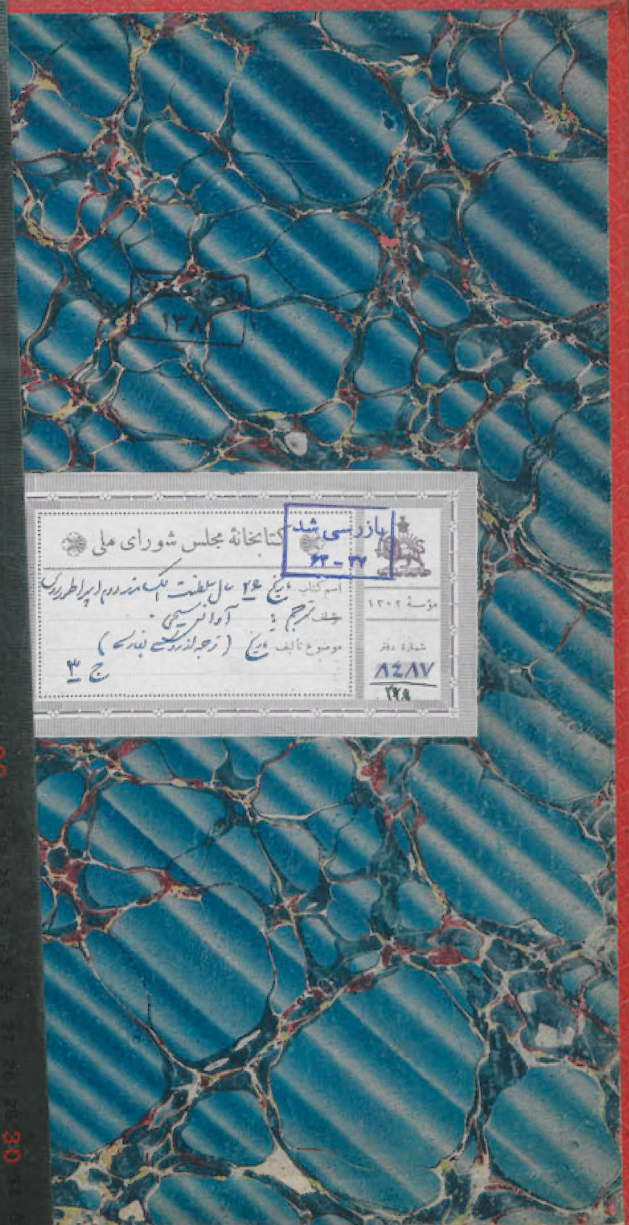 ۱۳۸
بازرسی شد
۳۷ - ۶۳
کتابخانهٔ مجلس شورای ملی
اسم کتاب تاریخ ۲۶ سال سلطنت الکساندر دوم امپراطور روس
مترجم : آوانس مسیحی
موضوع تالیف تاریخ (ترجمه از روسی بفارسی)
ج ۳
مؤسسهٔ ۱۳۰۲
شمارهٔ دفتر
۸۴۸۷
30